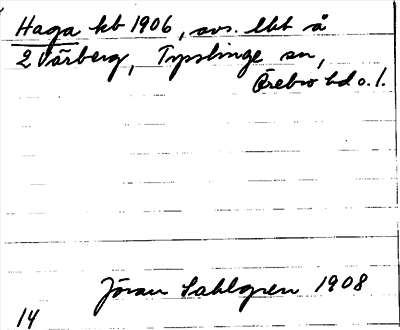 Haga kb 1906, avs. lht å
2 Vårberg, Tysslinge sn,
Örebro hd o. l.
Jöran Sahlgren 1908
14